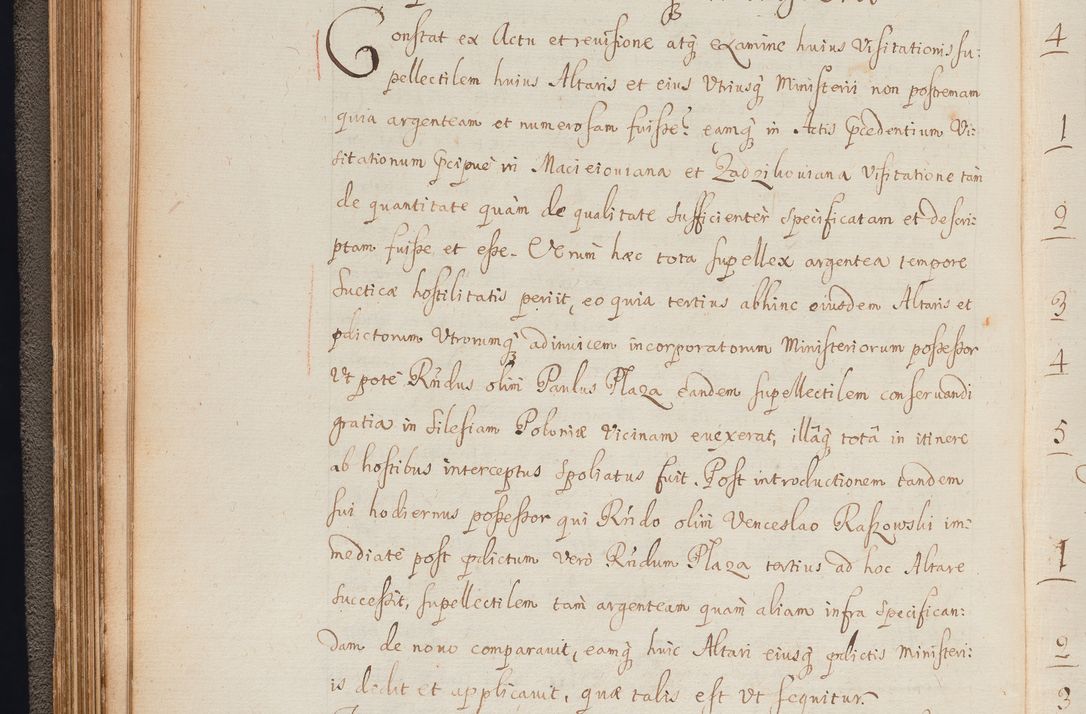 Constat ex Actu et reuisione atq̃ examine huius Visitationis su:
pellectilem huius Altaris et eius Vtriusq̃ Ministerii non postremam
quia argenteam et numerosam fuisse: eamq̃ in Actis p̃cedentium Vi:
sitationum p̃cipuè in Macieiouiana et Zadzikouiana Visitatione tàm
de quantitate quàm de qualitate sufficientèr specificatam et descri:
ptam fuisse et esse. Verùm hæc tota supellex argentea tempore
Sueticæ hostilitatis periit, eo quia tertius abhinc eiusdem Altaris et
p̃dictorum Vtrorumq̃ adinuicem incorporatorum Ministeriorum possessor
Vt potè Rñdus olim Paulus Plaza eandem supellectilem conseruandi
gratia in Silesiam Poloniæ Vicinam euexerat, illãq̃ totã in itinere
ab hostibus interceptus spoliatus fuit. Post introductionem tandem
sui hodiernus possessor qui Rñdo olim Venceslao Raszowski im:
mediatè post p̃dictum verò Rñdum Plaza tertius ad hoc Altare
successit, supellectilem tam argenteam quàm aliam infra specifican:
dam de nouo comparauit, eamq̃ huic Altari eiusq̃ p̃dictis Ministeri:
is dedit et applicauit, quæ talis est Vt sequitur.
4
1
2
3
4
5
1
2
3